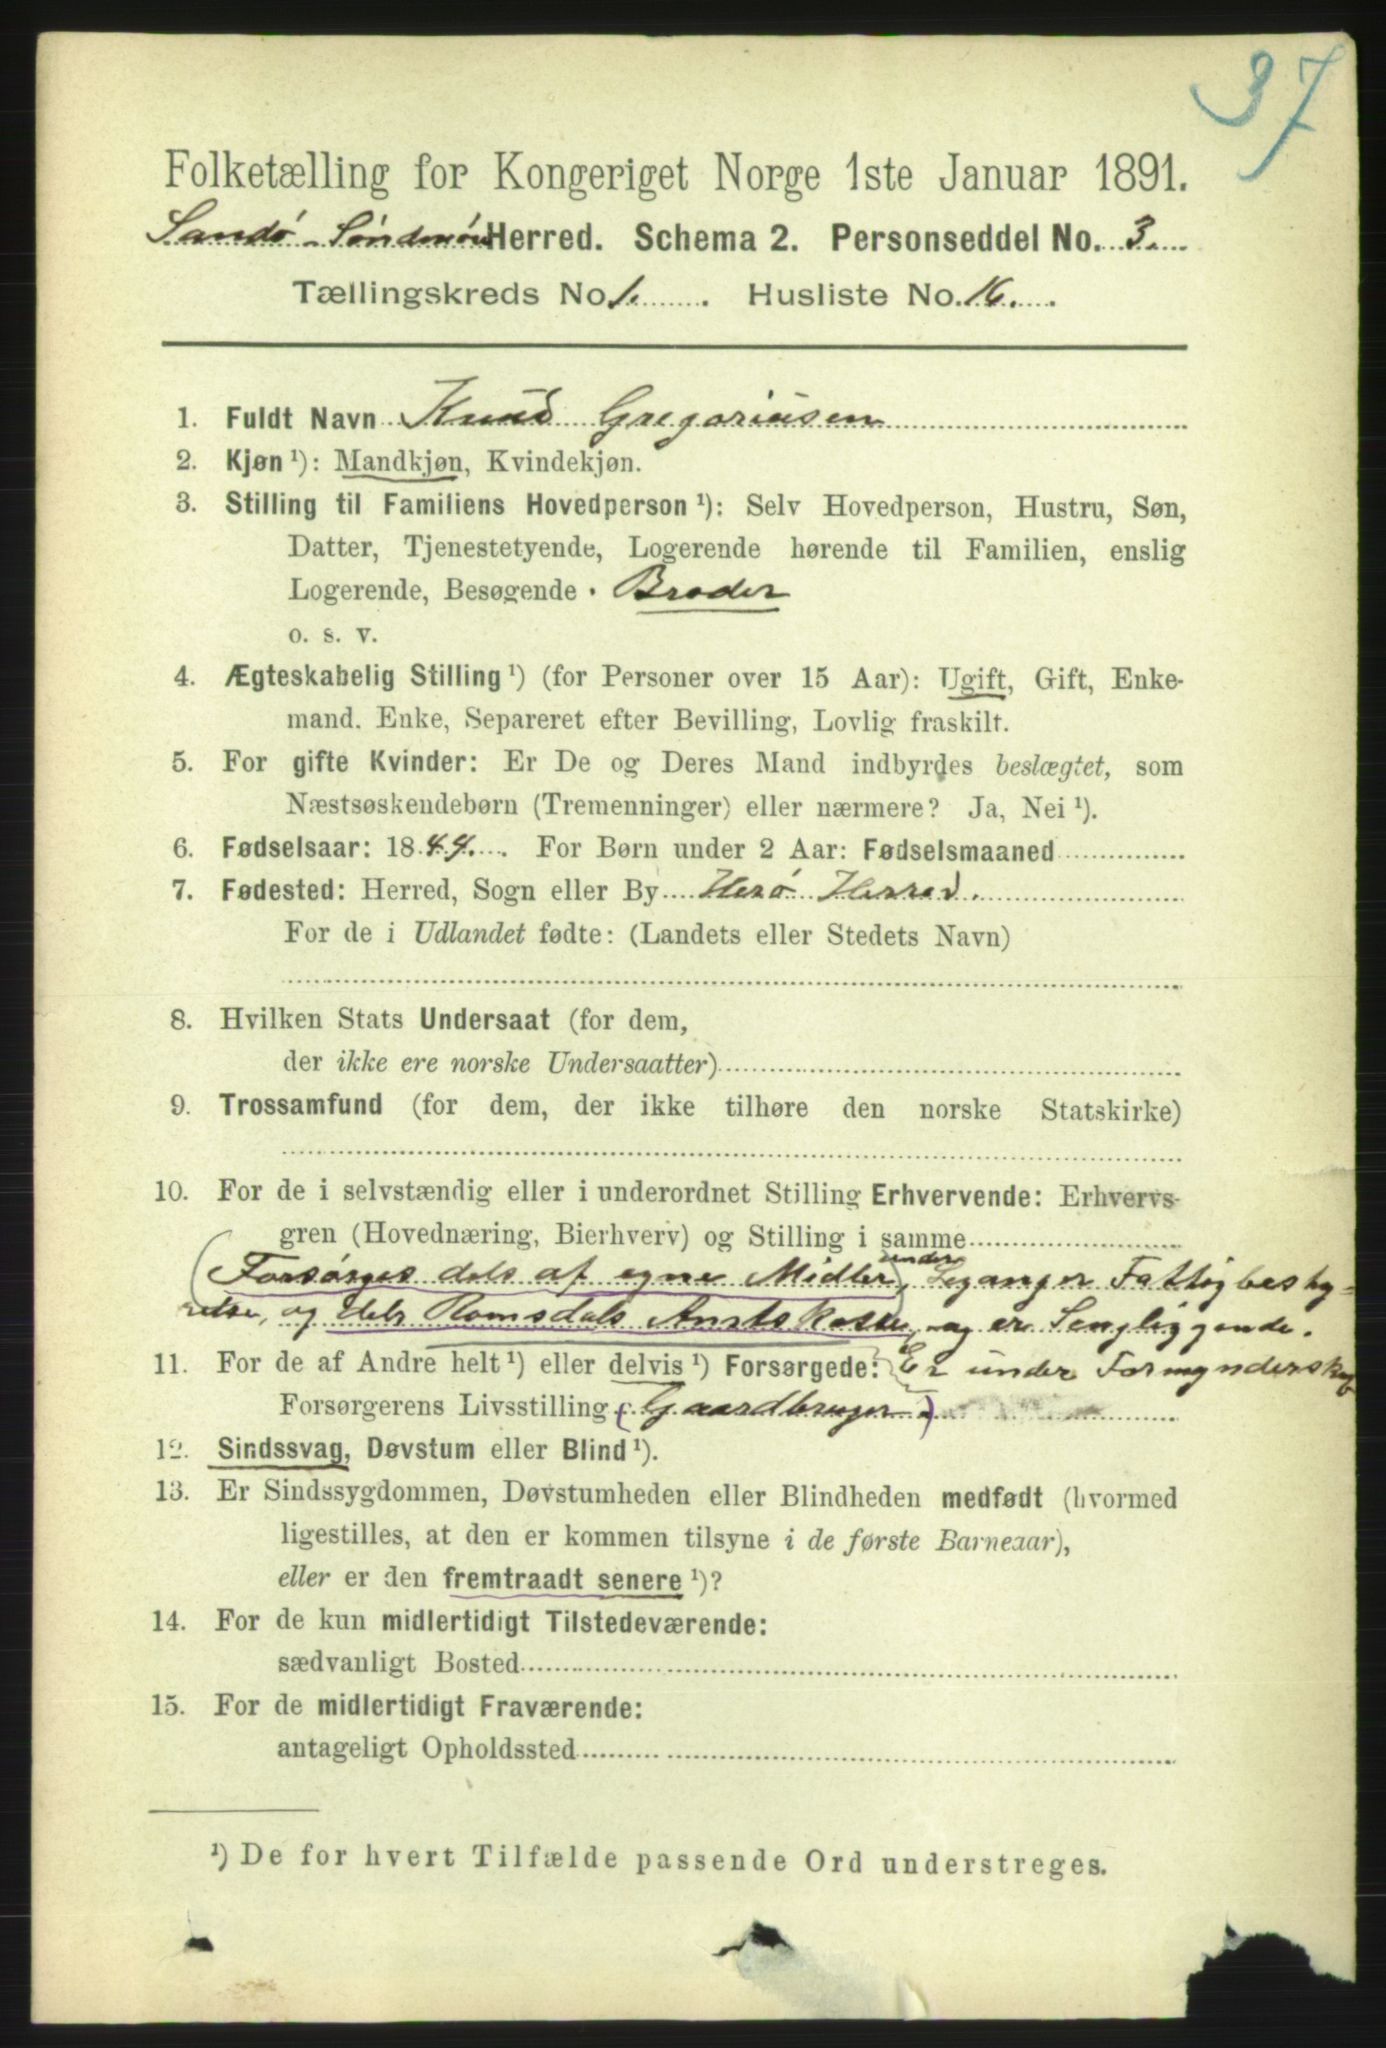 37
Folketælling for Kongeriget Norge 1ste Januar 1891.
Sandø - Søndmøre Herred. Schema 2. Personseddel No. 3.
Tællingskreds No 1. Husliste No. 16.
1. Fuldt Navn Knud Gregoriusen
2. Kjøn ¹): Mandkjøn, Kvindekjøn.
3. Stilling til Familiens Hovedperson ¹): Selv Hovedperson, Hustru, Søn,
Datter, Tjenestetyende, Logerende hørende til Familien, enslig
Logerende, Besøgende . Broder
o. s. v.
4. Ægteskabelig Stilling ¹) (for Personer over 15 Aar): Ugift, Gift, Enke-
mand. Enke, Separeret efter Bevilling, Lovlig fraskilt.
5. For gifte Kvinder: Er De og Deres Mand indbyrdes beslægtet, som
Næstsøskendebørn (Tremenninger) eller nærmere? Ja, Nei ¹).
6. Fødselsaar: 1844. For Børn under 2 Aar: Fødselsmaaned
7. Fødested: Herred, Sogn eller By Herø Herred.
For de i Udlandet fødte: (Landets eller Stedets Navn)
8. Hvilken Stats Undersaat (for dem,
der ikke ere norske Undersaatter)
9. Trossamfund (for dem, der ikke tilhøre den norske Statskirke)
10. For de i selvstændig eller i underordnet Stilling Erhvervende: Erhvervs-
gren (Hovednæring, Bierhverv) og Stilling i samme
under
(Forsørges dels af egne Midler, Leganger Fattigbesty-
relse, og dels Romsdals Amtskasse) og er Sengliggende.
11. For de af Andre helt ¹) eller delvis ¹) Forsørgede: Er under Formynderskab
Forsørgerens Livsstilling (Gaardbruger.)
12. Sindssvag, Døvstum eller Blind ¹).
13. Er Sindssygdommen, Døvstumheden eller Blindheden medfødt (hvormed
ligestilles, at den er kommen tilsyne i de første Barneaar),
eller er den fremtraadt senere ¹)?
14. For de kun midlertidigt Tilstedeværende:
sædvanligt Bosted
15. For de midlertidigt Fraværende:
antageligt Opholdssted
¹) De for hvert Tilfælde passende Ord understreges.